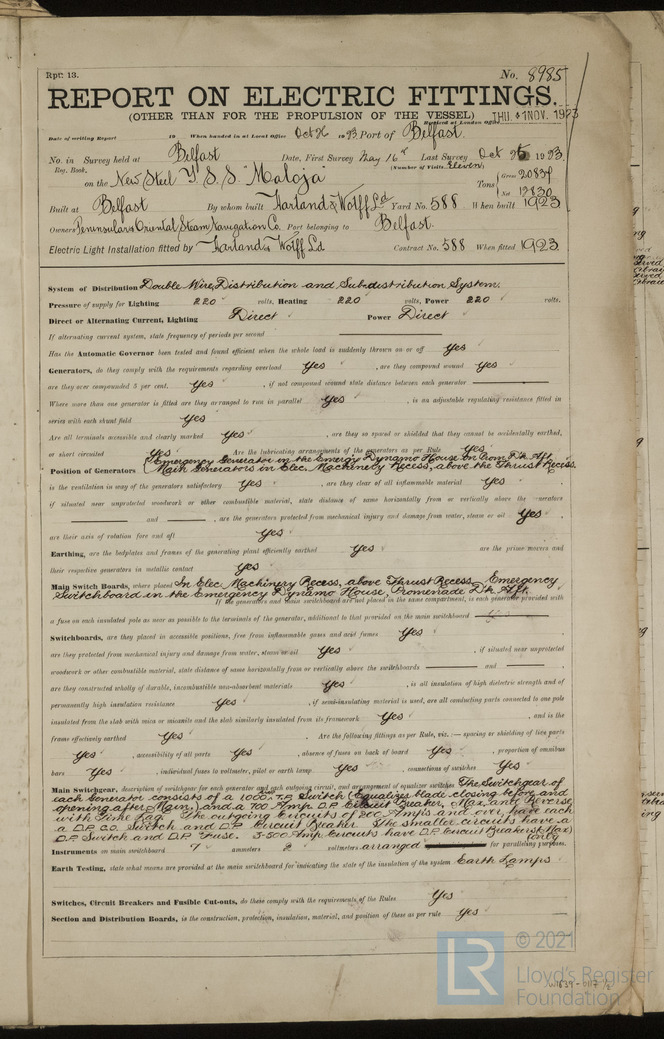 Rpt. 13.
No. 8985
REPORT ON ELECTRIC FITTINGS.
(OTHER THAN FOR THE PROPULSION OF THE VESSEL)
Received at London Office THU. 1 NOV. 1923
Date of writing Report 19 When handed in at Local Office Oct 26 1923 Port of Belfast.
No. in Survey held at Belfast Date, First Survey May 16th Last Survey Oct 25 1923.
Reg. Book. (Number of Visits Eleven)
on the New Steel T.S.S. "Maloja" Tons { Gross 20837 Net 12830
Built at Belfast By whom built Harland & Wolff Ld Yard No. 588 When built 1923
Owners Peninsular & Oriental Steam Navigation Co. Port belonging to Belfast.
Electric Light Installation fitted by Harland & Wolff Ld Contract No. 588 When fitted 1923
System of Distribution Double Wire, Distribution and Subdistribution System.
Pressure of supply for Lighting 220 volts, Heating 220 volts, Power 220 volts.
Direct or Alternating Current, Lighting Direct Power Direct
If alternating current system, state frequency of periods per second
Has the Automatic Governor been tested and found efficient when the whole load is suddenly thrown on or off Yes
Generators, do they comply with the requirements regarding overload Yes, are they compound wound Yes
are they over compounded 5 per cent. Yes, if not compound wound state distance between each generator
Where more than one generator is fitted are they arranged to run in parallel Yes, is an adjustable regulating resistance fitted in
series with each shunt field Yes
Are all terminals accessible and clearly marked Yes, are they so spaced or shielded that they cannot be accidentally earthed,
or short circuited Yes Are the lubricating arrangements of the generators as per Rule Yes
Emergency Generator in the Emergency Dynamo House on Prom. Dk. Aft.
Position of Generators Main Generators in Elec. Machinery Recess, above the Thrust Recess.
is the ventilation in way of the generators satisfactory Yes, are they clear of all inflammable material Yes
if situated near unprotected woodwork or other combustible material, state distance of same horizontally from or vertically above the generators
and, are the generators protected from mechanical injury and damage from water, steam or oil Yes,
are their axis of rotation fore and aft Yes
Earthing, are the bedplates and frames of the generating plant efficiently earthed Yes are the prime movers and
their respective generators in metallic contact Yes
Main Switch Boards, where placed In Elec. Machinery Recess, above Thrust Recess. Emergency
Switchboard in the Emergency Dynamo House, Promenade Dk. Aft.
If the generators and main switchboard are not placed in the same compartment, is each generator provided with
a fuse on each insulated pole as near as possible to the terminals of the generator, additional to that provided on the main switchboard
Switchboards, are they placed in accessible positions, free from inflammable gases and acid fumes Yes
are they protected from mechanical injury and damage from water, steam or oil Yes, if situated near unprotected
woodwork or other combustible material, state distance of same horizontally from or vertically above the switchboards and
are they constructed wholly of durable, incombustible non-absorbent materials Yes, is all insulation of high dielectric strength and of
permanently high insulation resistance Yes, if semi-insulating material is used, are all conducting parts connected to one pole
insulated from the slab with mica or micanite and the slab similarly insulated from its framework Yes, and is the
frame effectively earthed Yes. Are the following fittings as per Rule, viz.:— spacing or shielding of live parts
Yes, accessibility of all parts Yes, absence of fuses on back of board Yes, proportion of omnibus
bars Yes, individual fuses to voltmeter, pilot or earth lamp Yes, connections of switches Yes
Main Switchgear, description of switchgear for each generator and each outgoing circuit, and arrangement of equaliser switches The Switchgear of
each Generator consists of a 1000 T.P. Switch (Equalizer blade closing before and
opening after Main) and a 700 Amp. D.P. Circuit Breaker, Max. and Reverse
with Time Lag. The outgoing Circuits of 200 Amps and over have each
a D.P. C.O. Switch and D.P. Circuit Breaker. The smaller circuits have a
D.P. Switch and D.P. Fuse. 3-500 Amp. Circuits have D.P. Circuit Breakers (Max) only
Instruments on main switchboard 7 ammeters 2 voltmeters arranged for paralleling purposes.
Earth Testing, state what means are provided at the main switchboard for indicating the state of the insulation of the system Earth Lamps
Switches, Circuit Breakers and Fusible Cut-outs, do these comply with the requirements of the Rules Yes
Section and Distribution Boards, is the construction, protection, insulation, material, and position of these as per rule Yes
LR
© 2021
Lloyd's Register
Foundation
W1639-0117 1/2